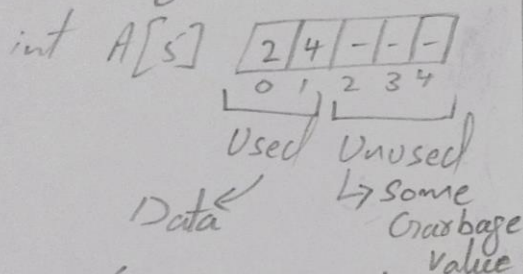 int A[5] 2 4 - - -
0 1 2 3 4
Used Unused
Data ↳ Some
Garbage
Value